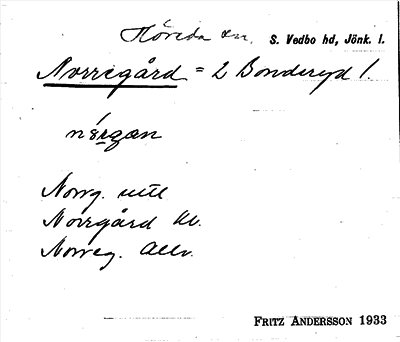 Flöreda sn. S. Vedbo hd, Jönk. l.
Norregård = 2 Bonderyd 1.
nó̱rgan
Norrg. uttl
Norrgård Kv.
Norreg. Allv.
FRITZ ANDERSSON 1933